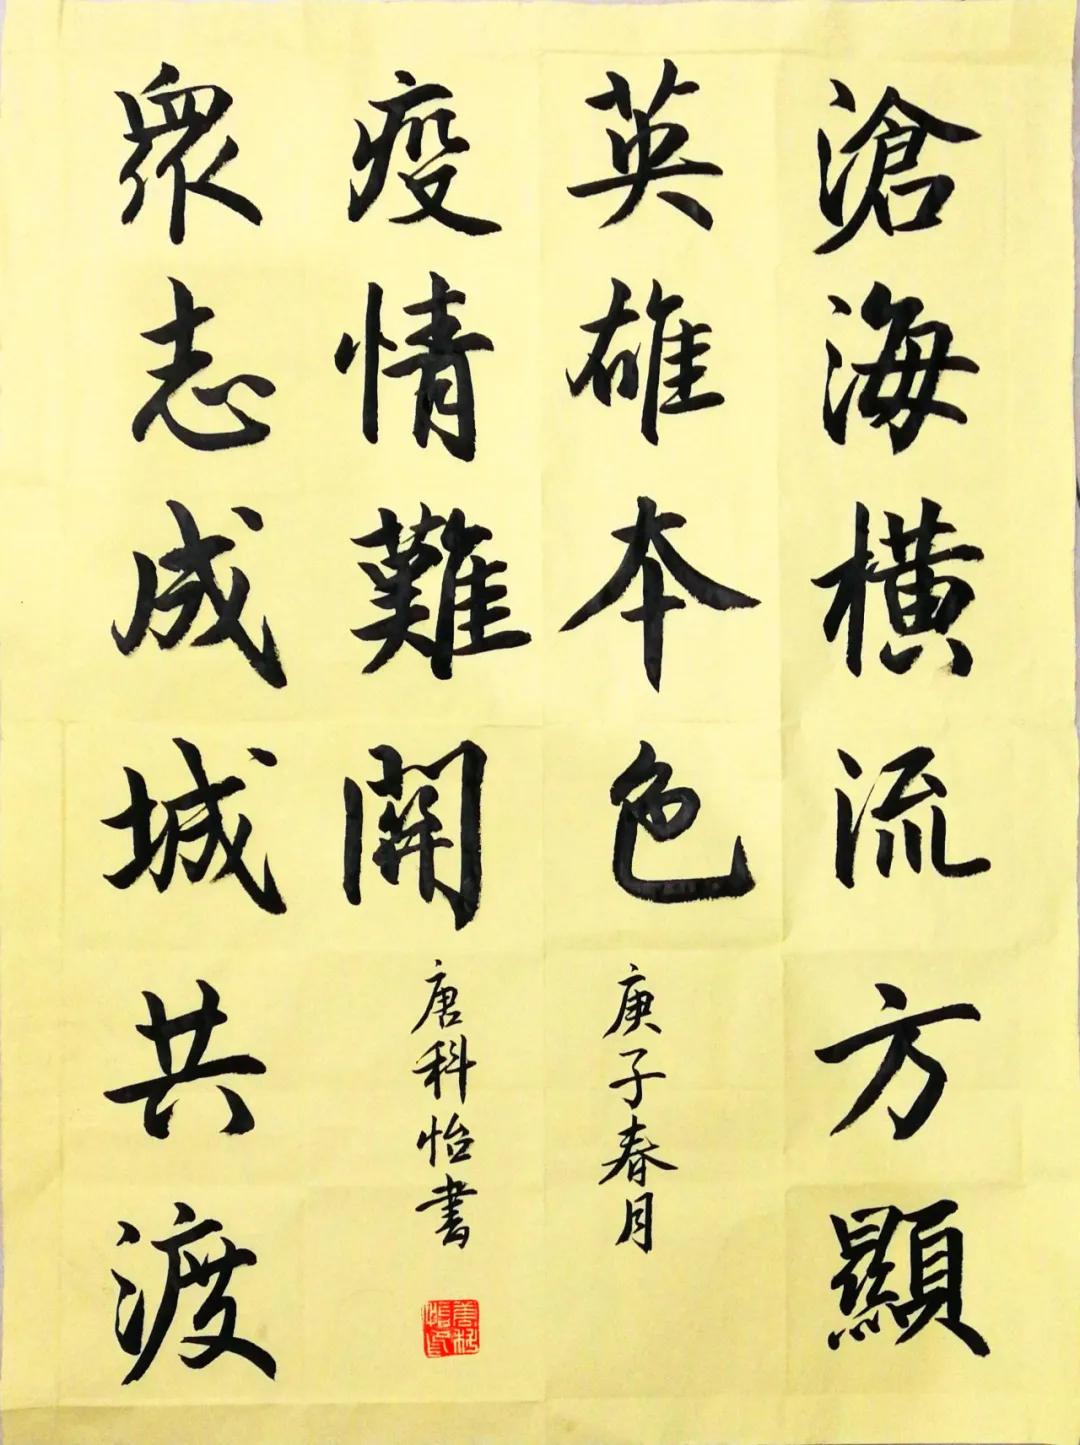 滄海橫流方顯
英雄本色
庚子春月
眾志成城共渡
疫情難關
唐科怡書
唐科怡印